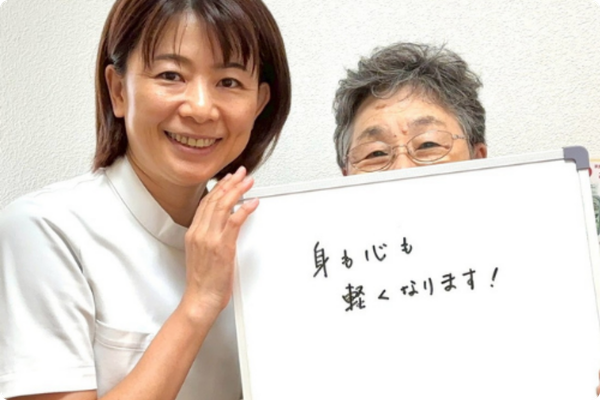 身も心も
軽くなります!